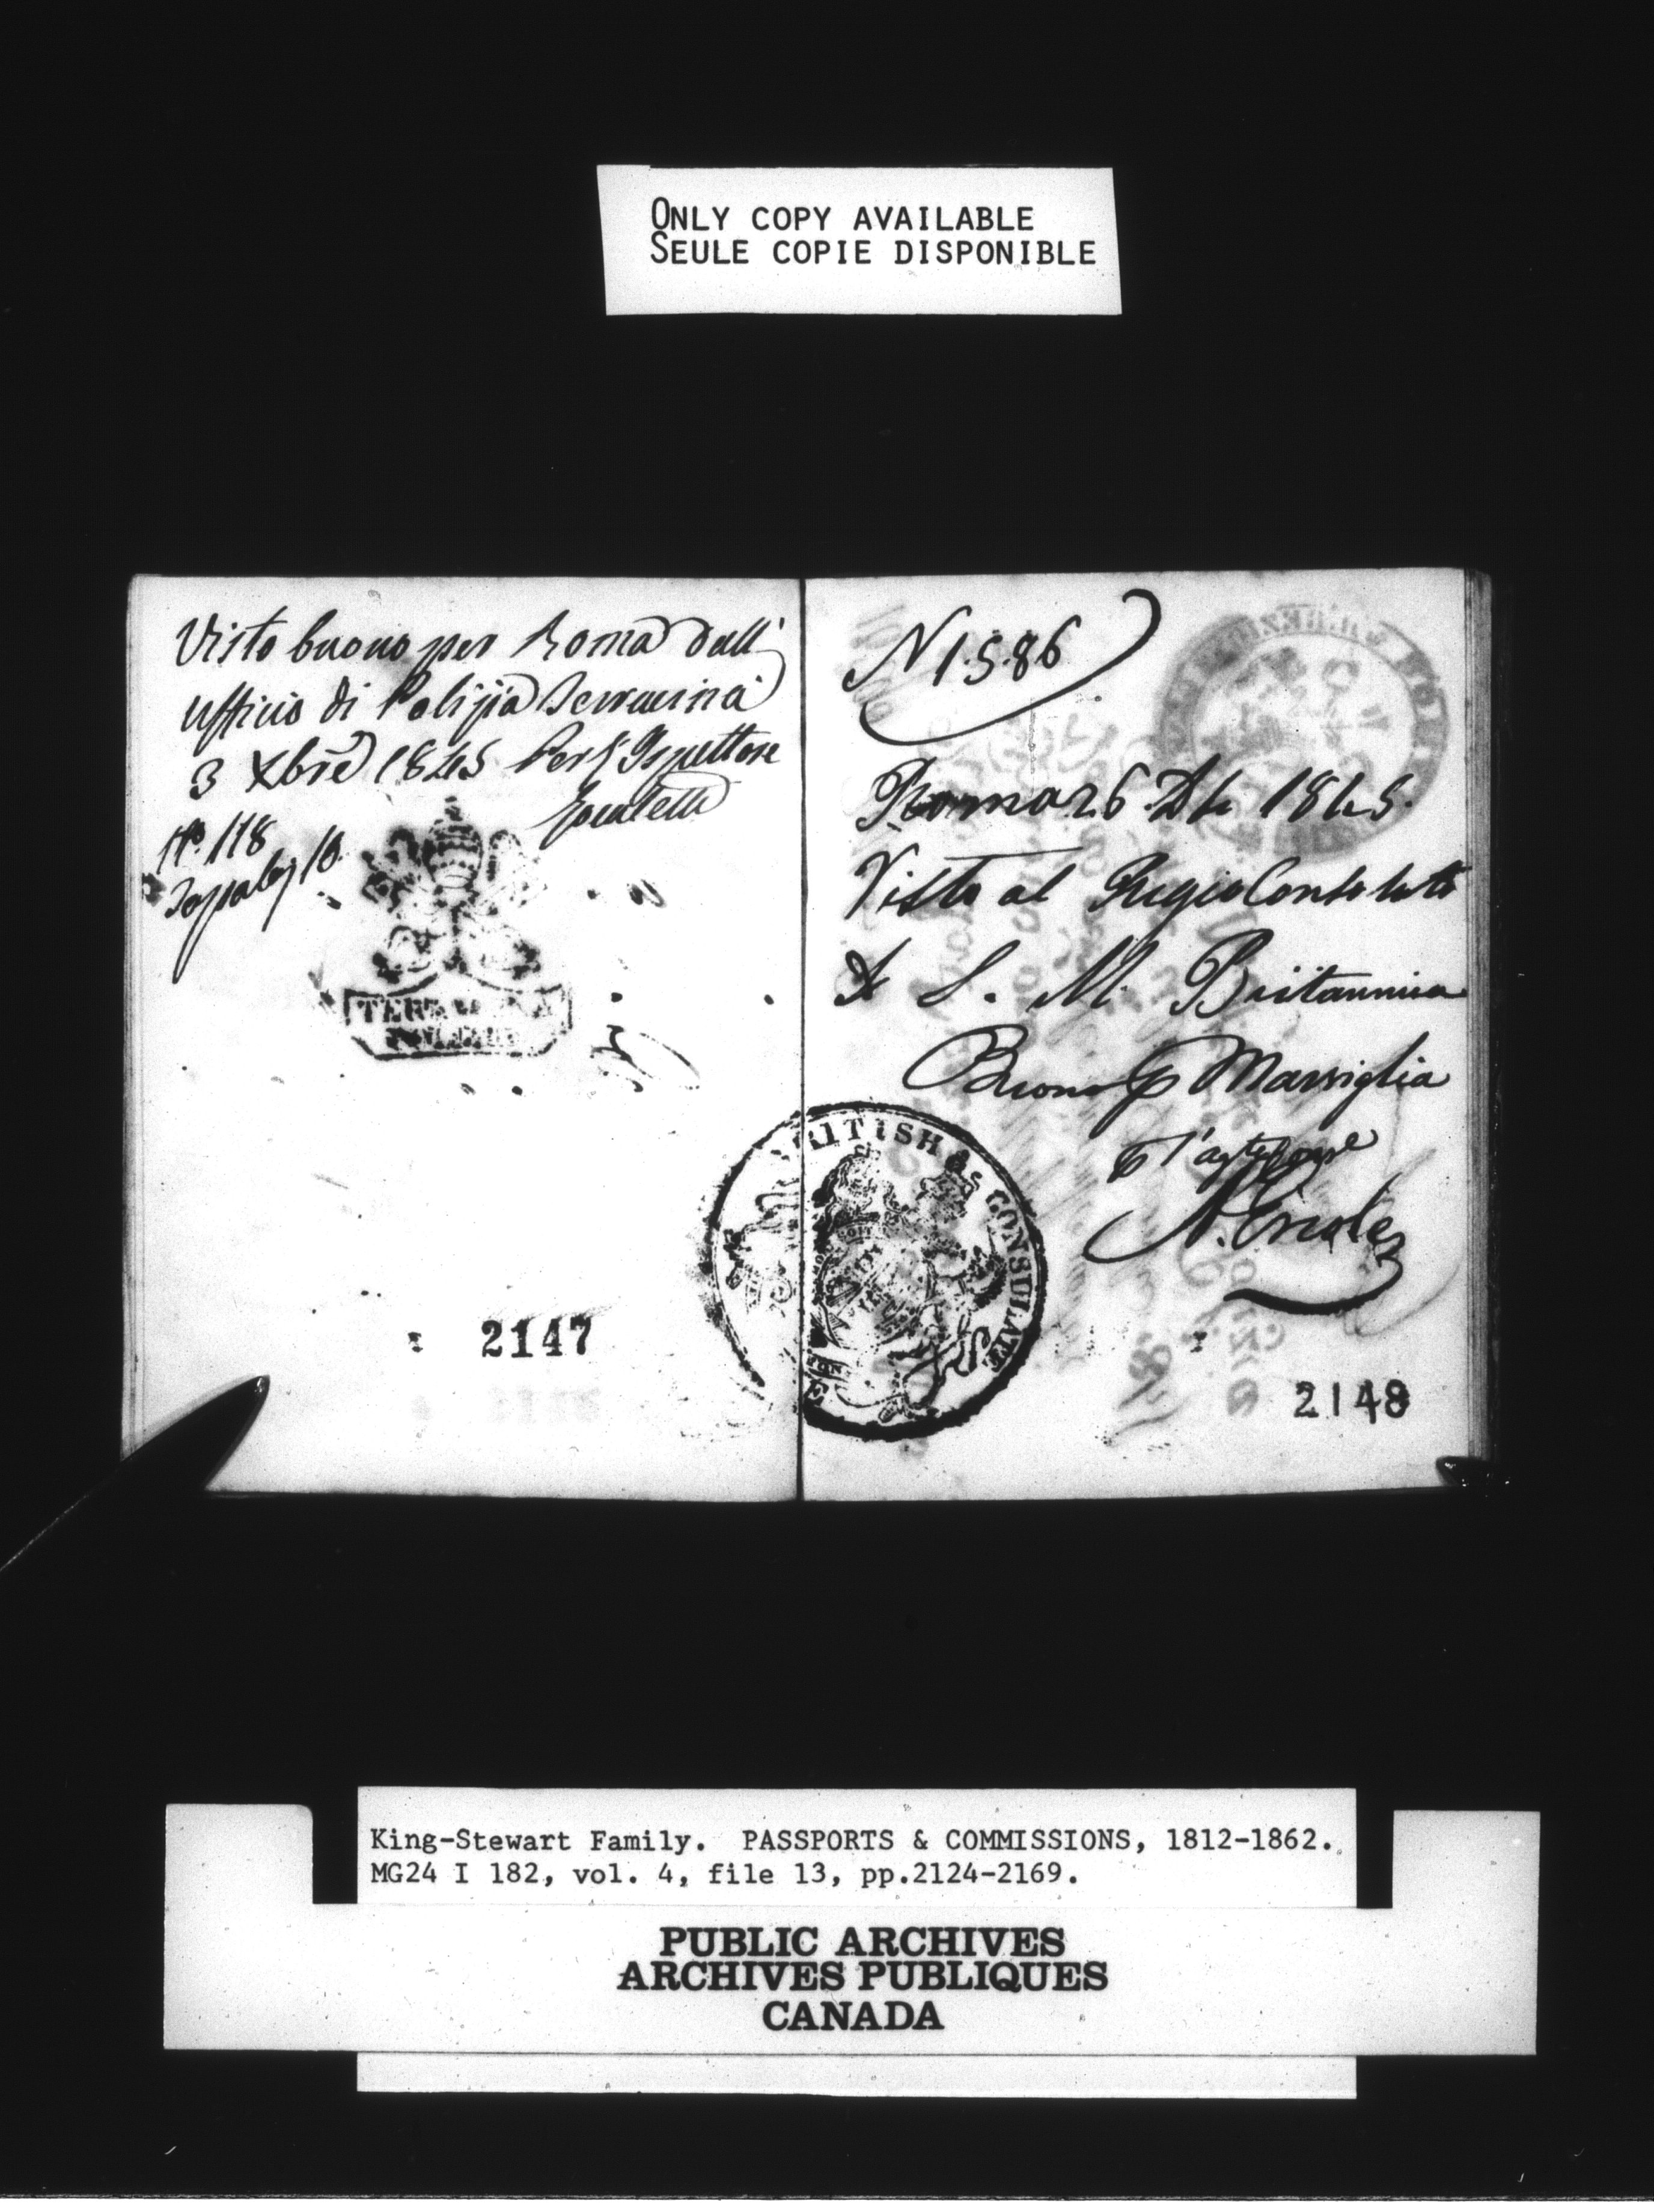 ONLY COPY AVAILABLE
SEULE COPIE DISPONIBLE
Visto buono per Roma dall'
Ufficio di Polizia Terracina
3 Xbre 1845 Per l'Ispettore
N°. 118
10
TERRACINA
2147
N 1586
Roma 26 Dbe 1845.
Visto al Regio Consolato
di S. M. Britannica
Buono p Marsiglia
BRITISH CONSULATE
2148
King-Stewart Family. PASSPORTS & COMMISSIONS, 1812-1862.
MG24 I 182, vol. 4, file 13, pp.2124-2169.
PUBLIC ARCHIVES
ARCHIVES PUBLIQUES
CANADA